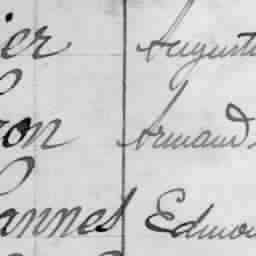 ier Auguste
ron Armand
annes Edmon